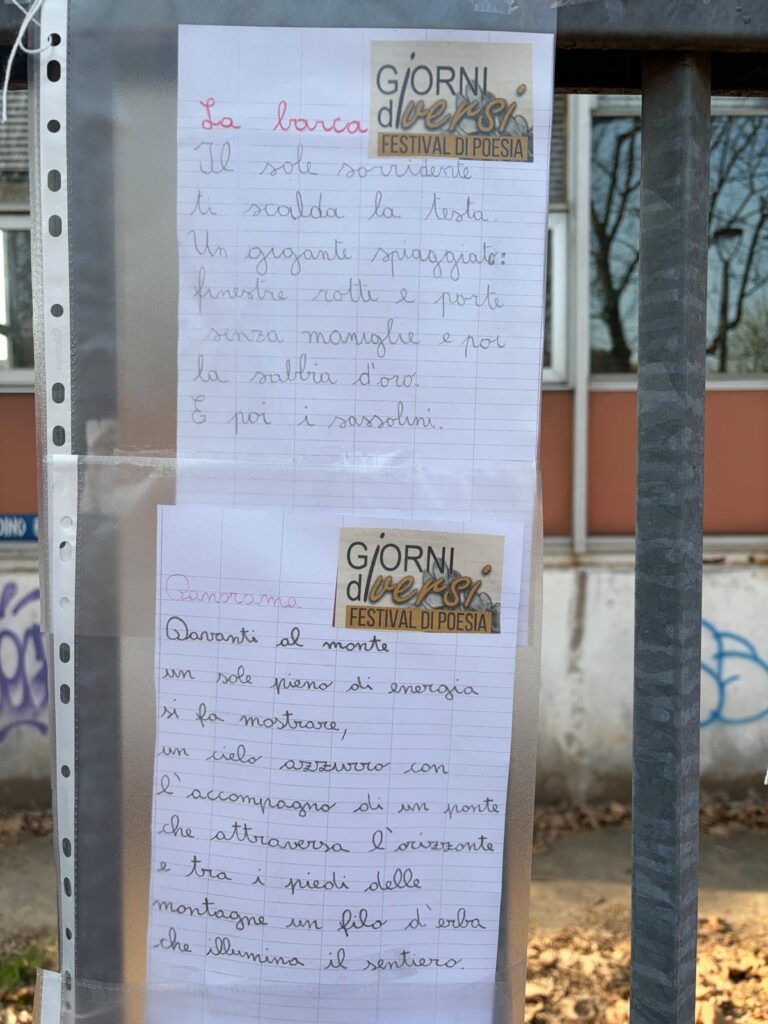 GiORNI
diversi
FESTIVAL DI POESIA
La barca
Il sole sorridente
ti scalda la testa.
Un gigante spiaggiato:
finestre rotte e porte
senza maniglie e poi
la sabbia d'oro.
E poi i sassolini.
GiORNI
diversi
FESTIVAL DI POESIA
Panorama
Davanti al monte
un sole pieno di energia
si fa mostrare,
un cielo azzurro con
l'accompagno di un ponte
che attraversa l'orizzonte
e tra i piedi delle
montagne un filo d'erba
che illumina il sentiero.